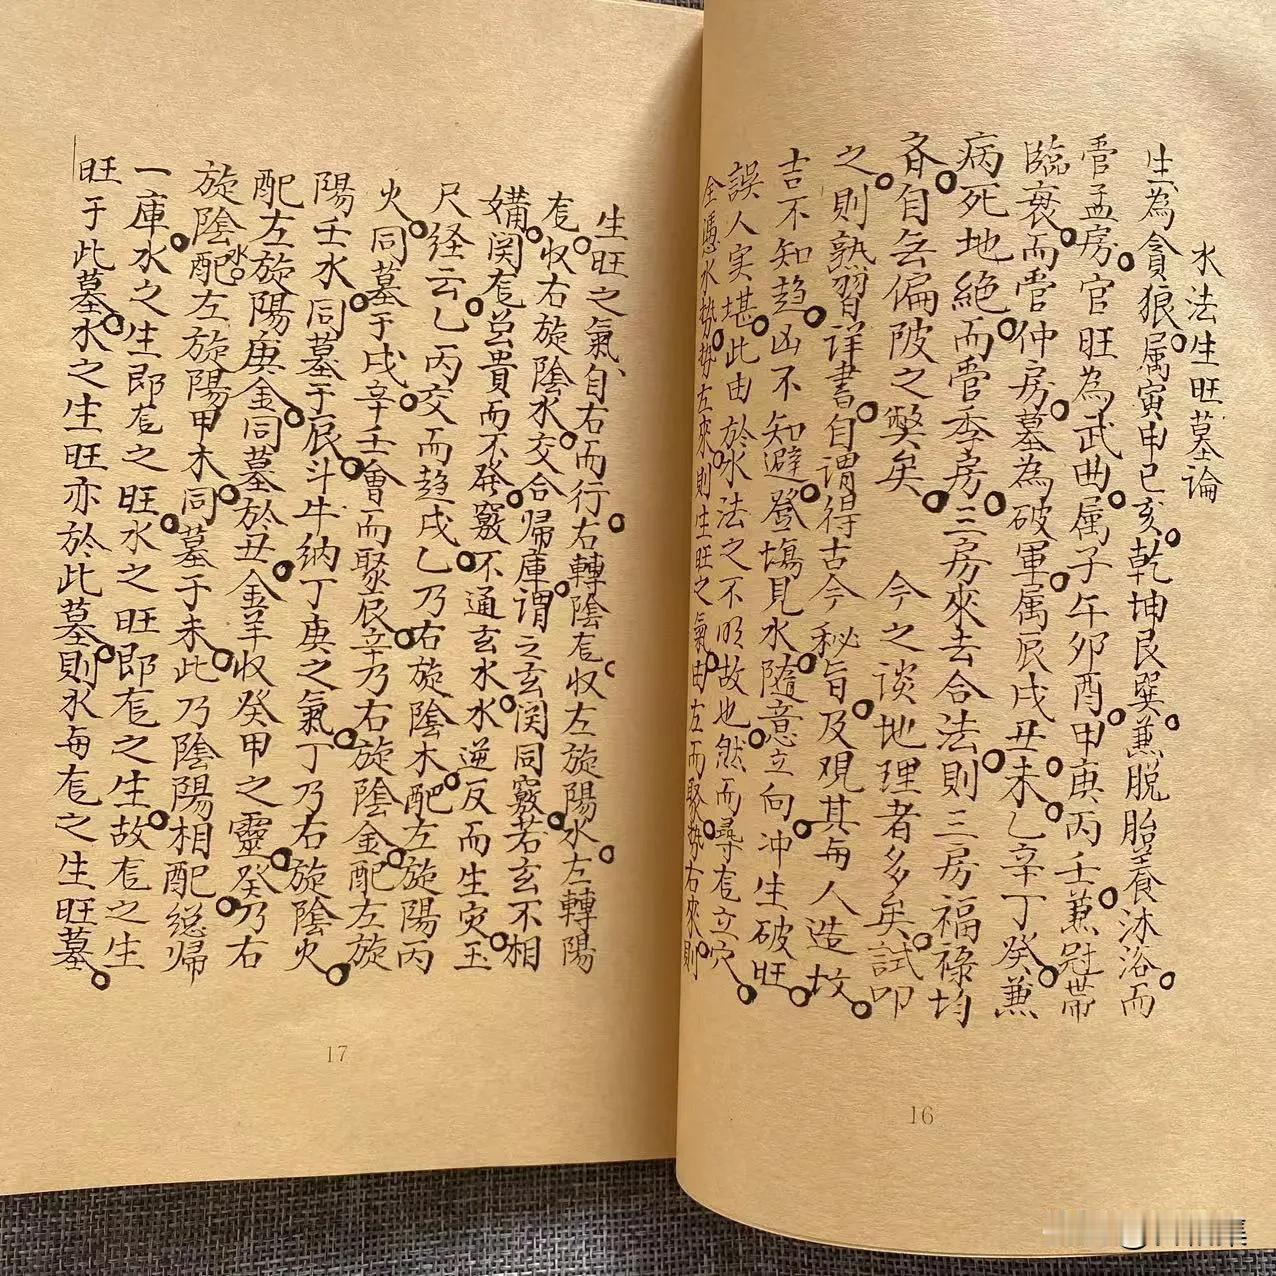 水法生旺墓論
生為貪狼属寅申巳亥乾坤艮巽兼脱胎養沐浴而
管孟房官旺為武曲属子午卯酉甲庚丙壬兼冠帶
臨衰而管仲房墓為破軍属辰戌丑未乙辛丁癸兼
病死地絕而管季房三房來去合法則三房福禄均
斉自無偏陂之獘矣 今之談地理者多矣試叩
之則熟習詳書自謂得古今秘旨及覌其每人造坟
吉不知趋凶不知避登塲見水隨意立向冲生破旺
誤人实堪此由於水法之不明故也然而尋龙立穴
全憑水勢勢左來則生旺之氣由左而聚勢右來則
16
生旺之氣自右而行右轉陰龙收左旋陽水左轉陽
龙收右旋陰水交合歸庫謂之玄関同竅若玄不相
媾関龙岂貴而不発竅不通玄水水逆反而生灾玉
尺経云乙丙交而趋戌乙乃右旋陰木配左旋陽丙
火同墓于戌辛壬會而聚辰辛乃右旋陰金配左旋
陽壬水同墓于辰斗牛納丁庚之氣丁乃右旋陰火
配左旋陽庚金同墓於丑金羊收癸甲之靈癸乃右
旋陰水配左旋陽甲木同墓于未此乃陰陽相配総歸
一庫水之生即龙之旺水之旺即龙之生故龙之生
旺于此墓水之生旺亦於此墓則水每龙之生旺墓
17